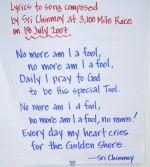 Lyrics to song composed
by Sri Chinmoy at 3,100 Mile Race
on 18 July 2007
No more am I a fool,
no more am I a fool,
Daily I pray to God
to be His special Tool.
No more am I a fool,
no more am I a fool, no more!
Every day my heart cries
for the Golden Shore.
—Sri Chinmoy